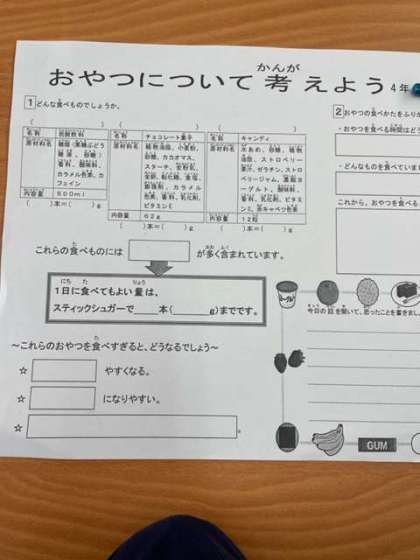 おやつについて考えよう 4年
かんが
1 どんな食べものでしょうか。
( ( (
名称 炭酸飲料
原材料名 糖類(果糖ぶどう
糖液、砂糖)
香料、酸味料、
カラメル色素、カ
フェイン
内容量 500ml
( )本=( g)
名称 チョコレート菓子
原材料名 植物油脂、小麦粉、
砂糖、カカオマス、
スターチ、全粉乳、
全卵、転化糖、食塩、
膨張剤、カラメル
色素、香料、乳化剤、
ビタミンE
内容量 62g
( )本=( g)
名称 キャンディ
原材料名 水あめ、砂糖、植物
油脂、ストロベリー
果汁、ゼラチン、ストロベ
リージャム、濃縮ヨ
ーグルト、酸味料、
香料、乳化剤、ビタミ
ンE、紫キャベツ色素
内容量 12粒
( )本=( g)
これらの食べものには が多く含まれています。
た おお ふく
にち た りょう
1日に食べてもよい量は、
スティックシュガーで 本( g)までです。
～これらのおやつを食べすぎると、どうなるでしょう～
た
☆ やすくなる。
☆ になりやすい。
☆ 。
2 おやつの食べかたをふりか
・おやつを食べる時間はど
・どんなものを食べていま
これから、おやつを食べる
今日の話を聞いて、思ったことを書きまし
GUM